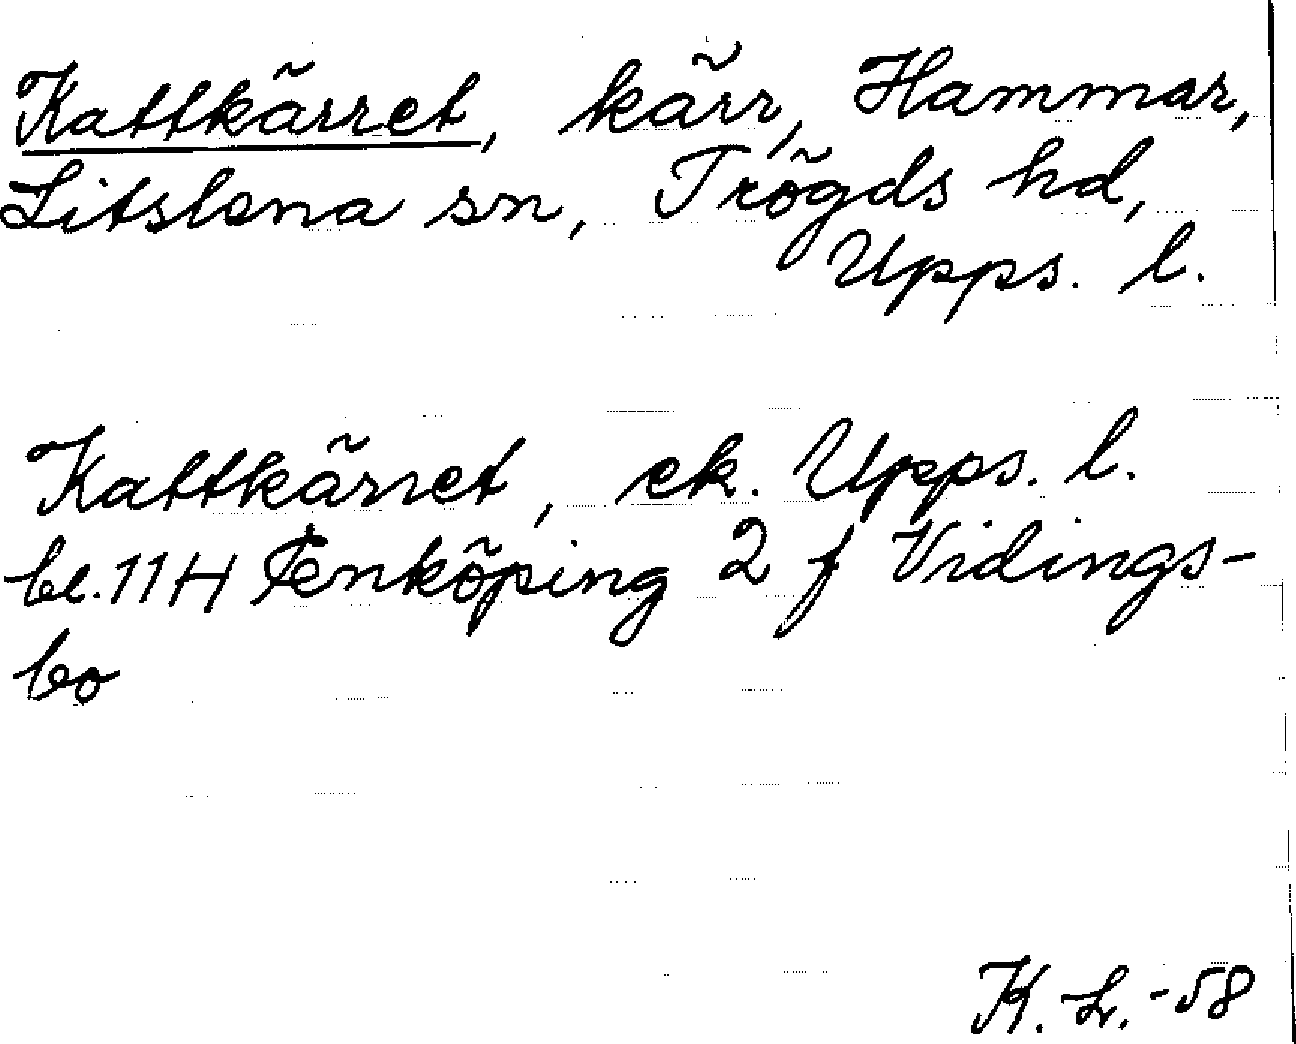 Kattkärret, kärr, Hammar,
Litslena sn, Trögds hd,
Upps. l.
Kattkärret, ek. Upps. l.
bl. 11H Enköping 2 f Vidings-
bo
K.-L. -58